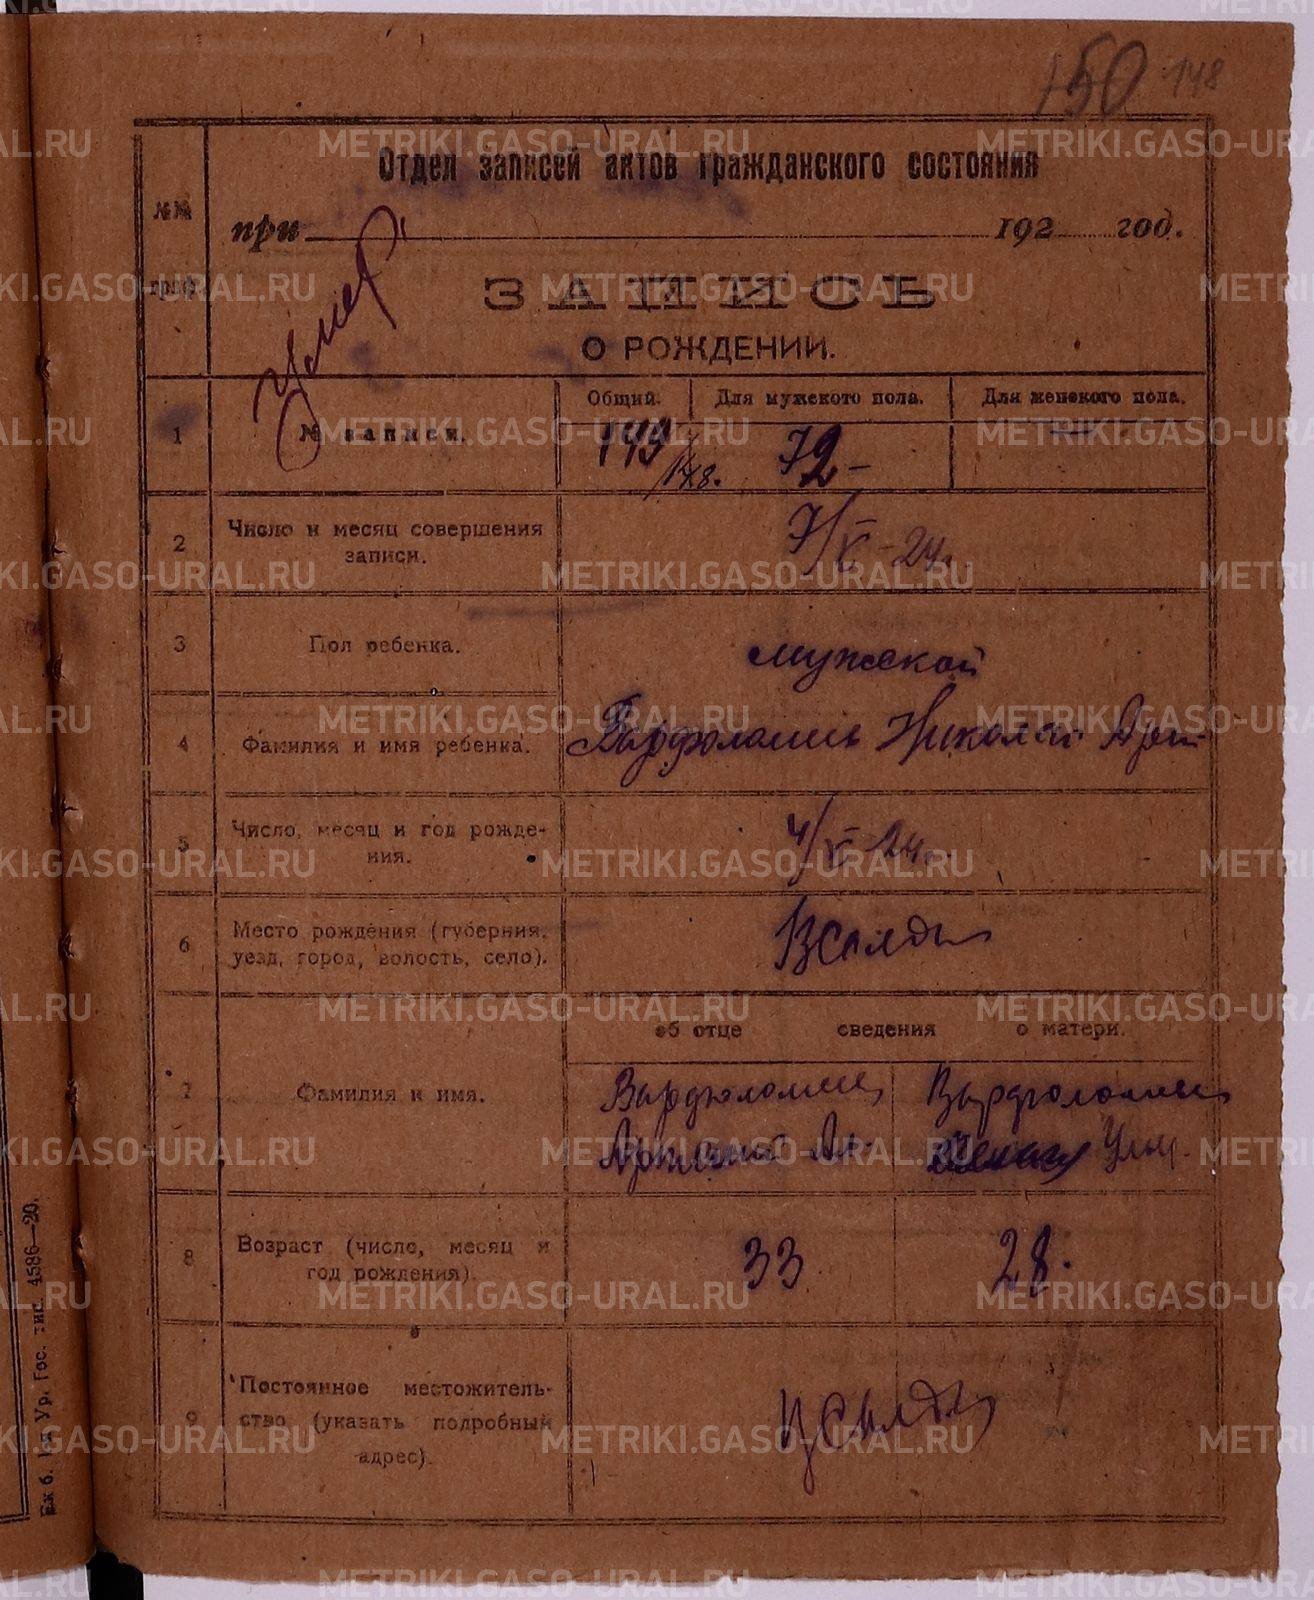 150 148
Отдел записей актов гражданского состояния
№№ граф.
при 192 год.
Умер
ЗАПИСЬ
О РОЖДЕНИИ.
Общий. Для мужского пола. Для женского пола.
1 № записи. 149/148. 72 —
2 Число и месяц совершения
записи.
7/XI-24г.
3 Пол ребенка. мужской
4 Фамилия и имя ребенка. Варфоломеев Николай
5 Число, месяц и год рожде-
ния.
4/XI-24г.
6 Место рождения (губерния,
уезд, город, волость, село).
В Салда
об отце сведения о матери.
7 Фамилия и имя.
Варфоломеев Варфоломеева
8 Возраст (число, месяц и
год рождения).
33 28.
9 Постоянное местожитель-
ство (указать подробный
адрес).
В Салда
Ур. Гос. тип. 4586—20.
METRIKI.GASO-URAL.RU